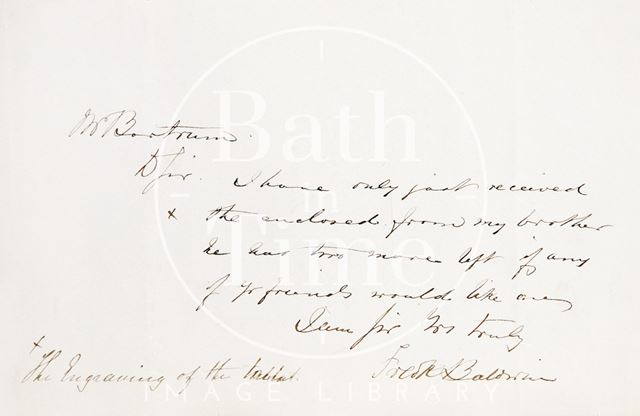 Mr Bartrum.
D Sir. I have only just received
x the enclosed from my brother
he has two more left if any
of yr friends would like one
I am Sir Yrs truly
Fredk Baldwin
x
The Engraving of the
Bath
in
Time
IMAGE LIBRARY